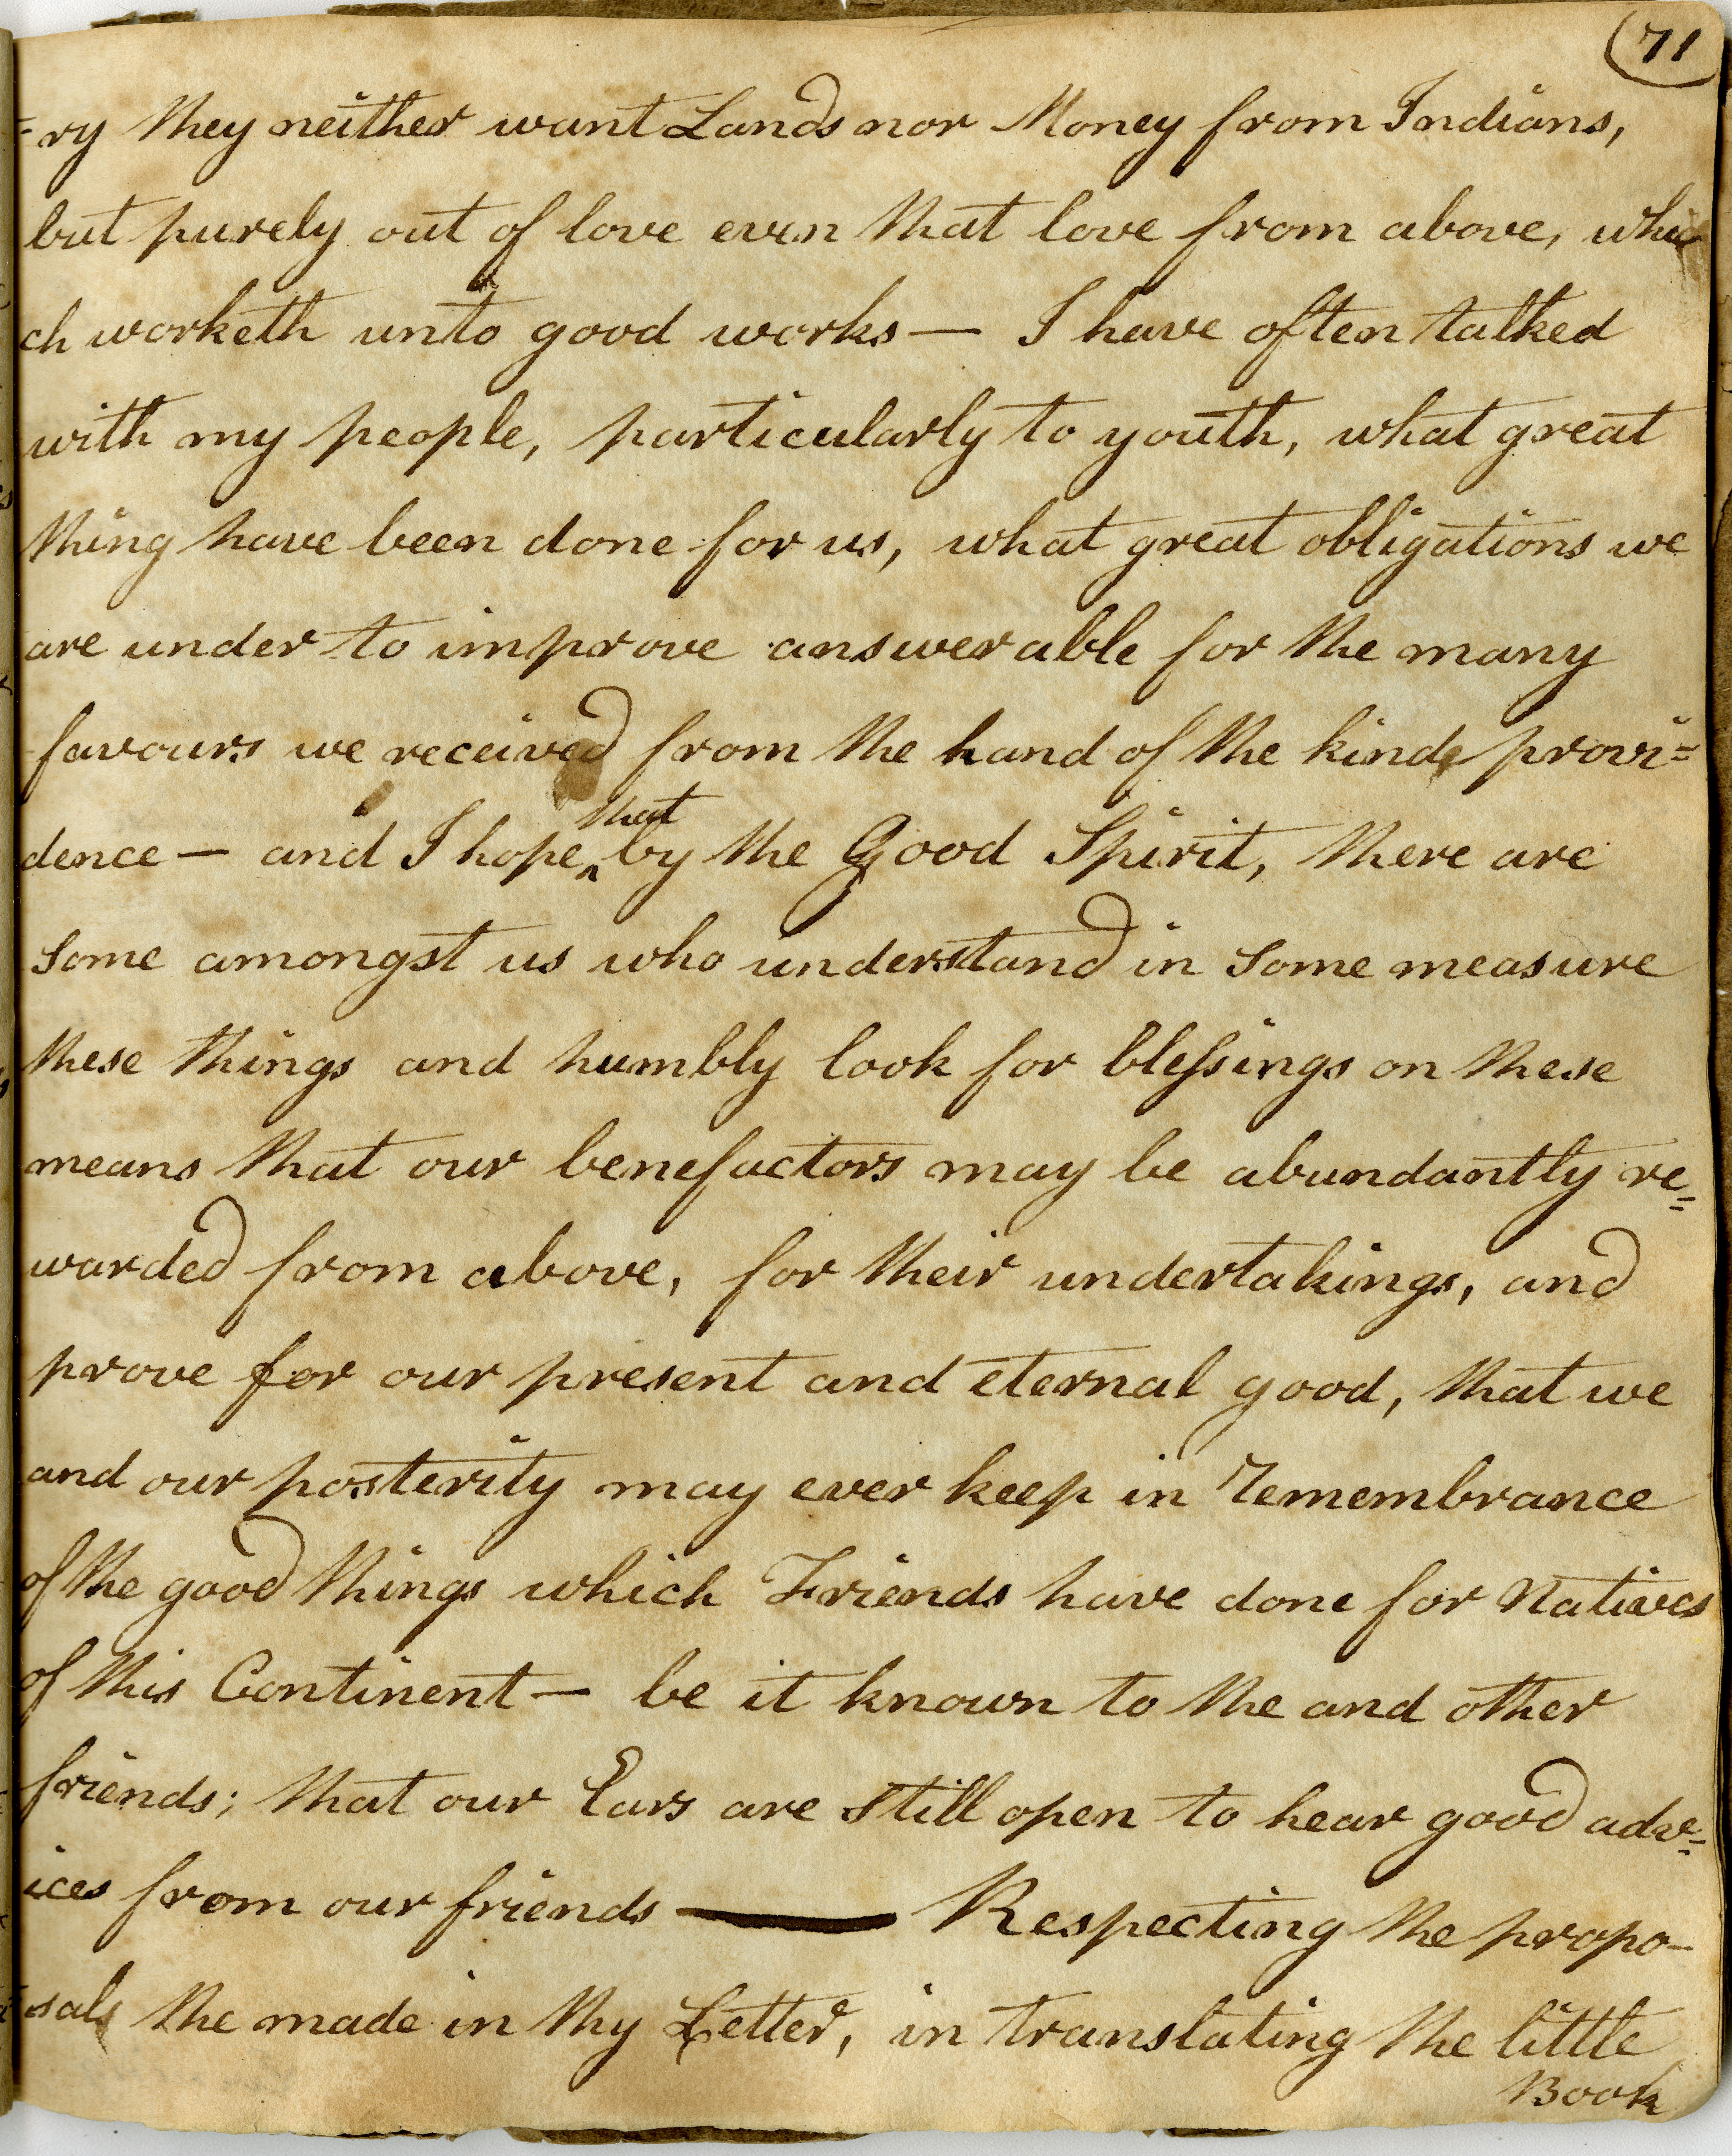 71
-ry they neither want Lands nor Money from Indians,
but purely out of love even that love from above, whi
ch worketh unto good works — I have often talked
with my people, particularly to youth, what great
thing have been done for us, what great obligations we
are under to improve answerable for the many
favours we received from the hand of the kind provi=
that
dence — and I hope ^ by the Good Spirit, there are
Some amongst us who understand in Some measure
these things and humbly look for blessings on these
means that our benefactors may be abundantly re=
warded from above, for their undertakings, and
prove for our present and eternal good, that we
and our posterity may ever keep in remembrance
of the good things which Friends have done for Natives
of this Continent — be it known to the and other
friends; that our Ears are still open to hear good adv=
ices from our friends — Respecting the propo-
sals the made in thy Letter, in translating the little
Book